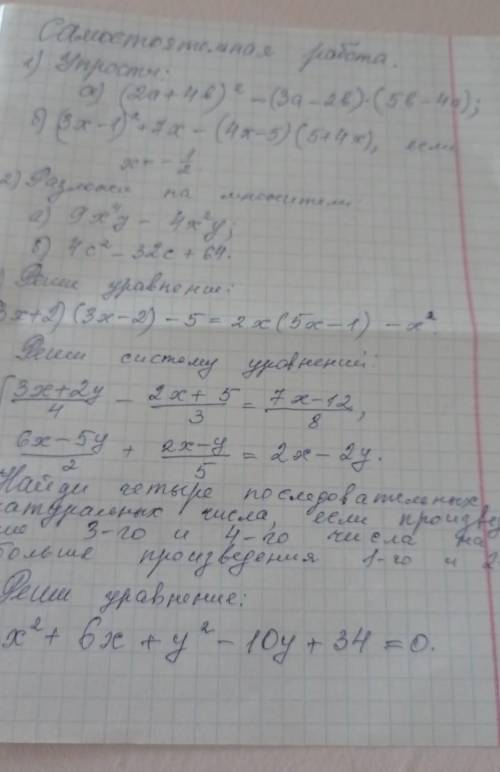 Самостоятельная работа.
1) Упрости:
а) (2a+4b)² - (3a-2b)·(5b-4a);
б) (3x-1)²+7x-(4x-5)(5+4x), если
x=-1/2.
2) Разложи на множители
а) 9x⁴y - 4x²y;
б) 4c²-32c+64.
) Реши уравнение:
3x+2)(3x-2)-5=2x(5x-1)-x².
Реши систему уравнений:
(3x+2y)/4 - (2x+5)/3 = (7x-12)/8,
(6x-5y)/2 + (2x-y)/5 = 2x-2y.
Найди четыре последовательных
натуральных числа, если произве
ние 3-го и 4-го числа на
больше произведения 1-го и 2
Реши уравнение:
x²+6x+y²-10y+34=0.